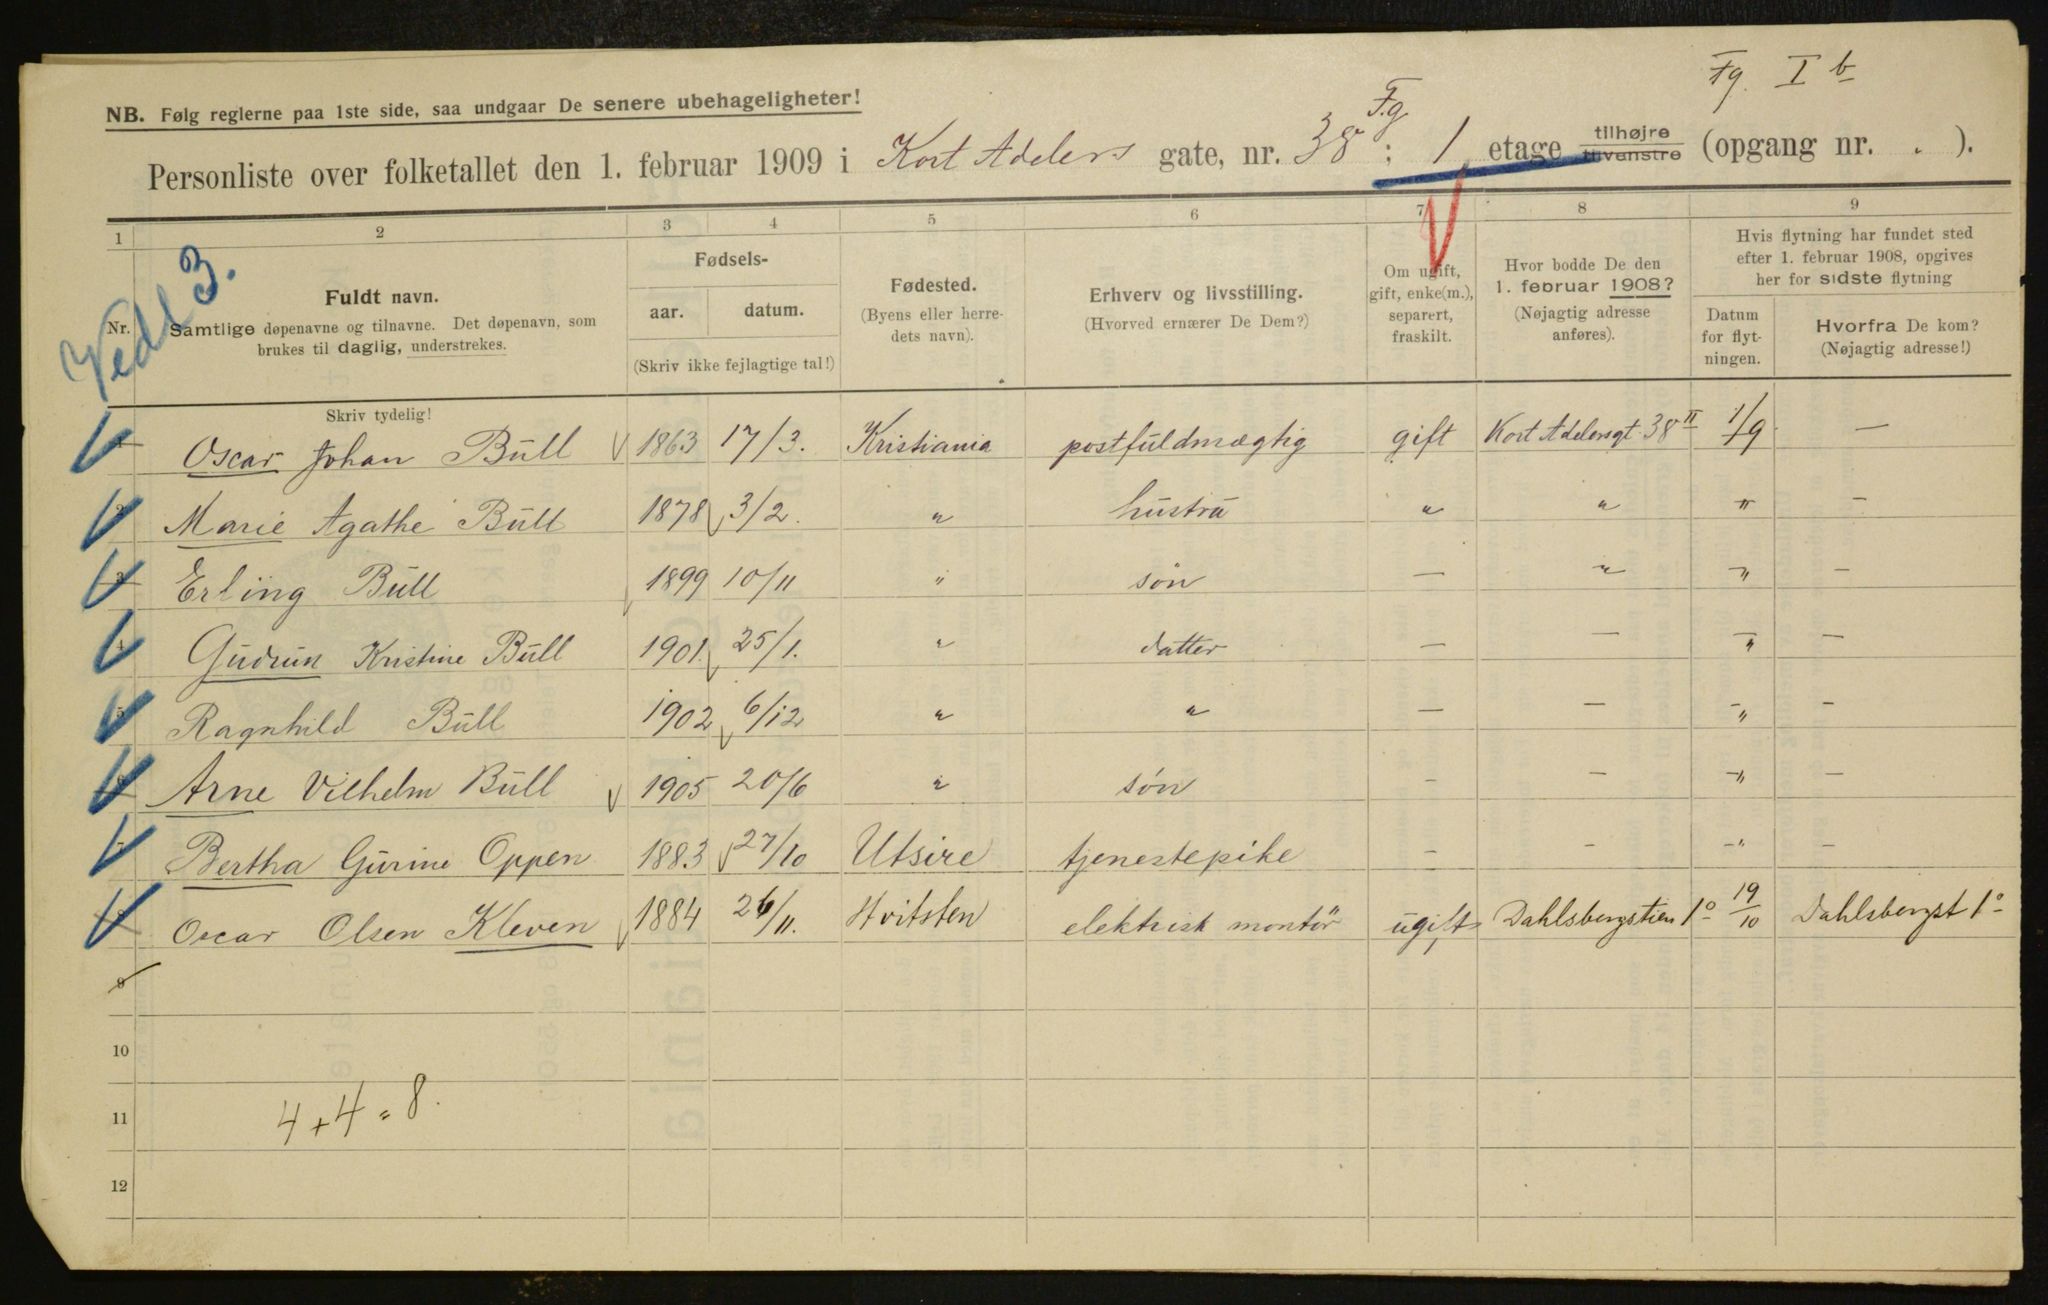 Fg. I b
NB. Følg reglerne paa 1ste side, saa undgaar De senere ubehageligheter!
Fg
Personliste over folketallet den 1. februar 1909 i Kort Adelers gate, nr. 38; 1 etage tilhøjre tilvenstre (opgang nr. . ).
1 2 3 4 5 6 7 8 9
Vedl 3.
Nr.
Fuldt navn.
Samtlige døpenavne og tilnavne. Det døpenavn, som
brukes til daglig, understrekes.
Skriv tydelig!
Fødsels-
aar. datum.
(Skriv ikke fejlagtige tal!)
Fødested.
(Byens eller herre-
dets navn).
Erhverv og livsstilling.
(Hvorved ernærer De Dem?)
Om ugift,
gift, enke(m.),
separert,
fraskilt.
Hvor bodde De den
1. februar 1908?
(Nøjagtig adresse
anføres).
Hvis flytning har fundet sted
efter 1. februar 1908, opgives
her for sidste flytning
Datum
for flyt-
ningen.
Hvorfra De kom?
(Nøjagtig adresse!)
1 Oscar Johan Bull 1863 17/3. Kristiania postfuldmægtig gift Kort Adelersgt 38 II 1/9 —
2 Marie Agathe Bull 1878 3/2. " hustru " " " –
3 Erling Bull 1899 10/11 " søn — " " –
4 Gudrun Kristine Bull 1901. 25/1. " datter — — " –
5 Ragnhild Bull 1902 6/12 " " — – " –
6 Arne Vilhelm Bull 1905 20/6 " søn – – " –
7 Bertha Gurine Oppen 1883 27/10 Utsire tjenestepike – – " –
8 Oscar Olsen Kleven 1884 26/11. Hvitsten elektrisk montør ugift Dahlsbergstien 1o 19/10 Dahlsbergst 1o
9
10
11 4 + 4 = 8.
12